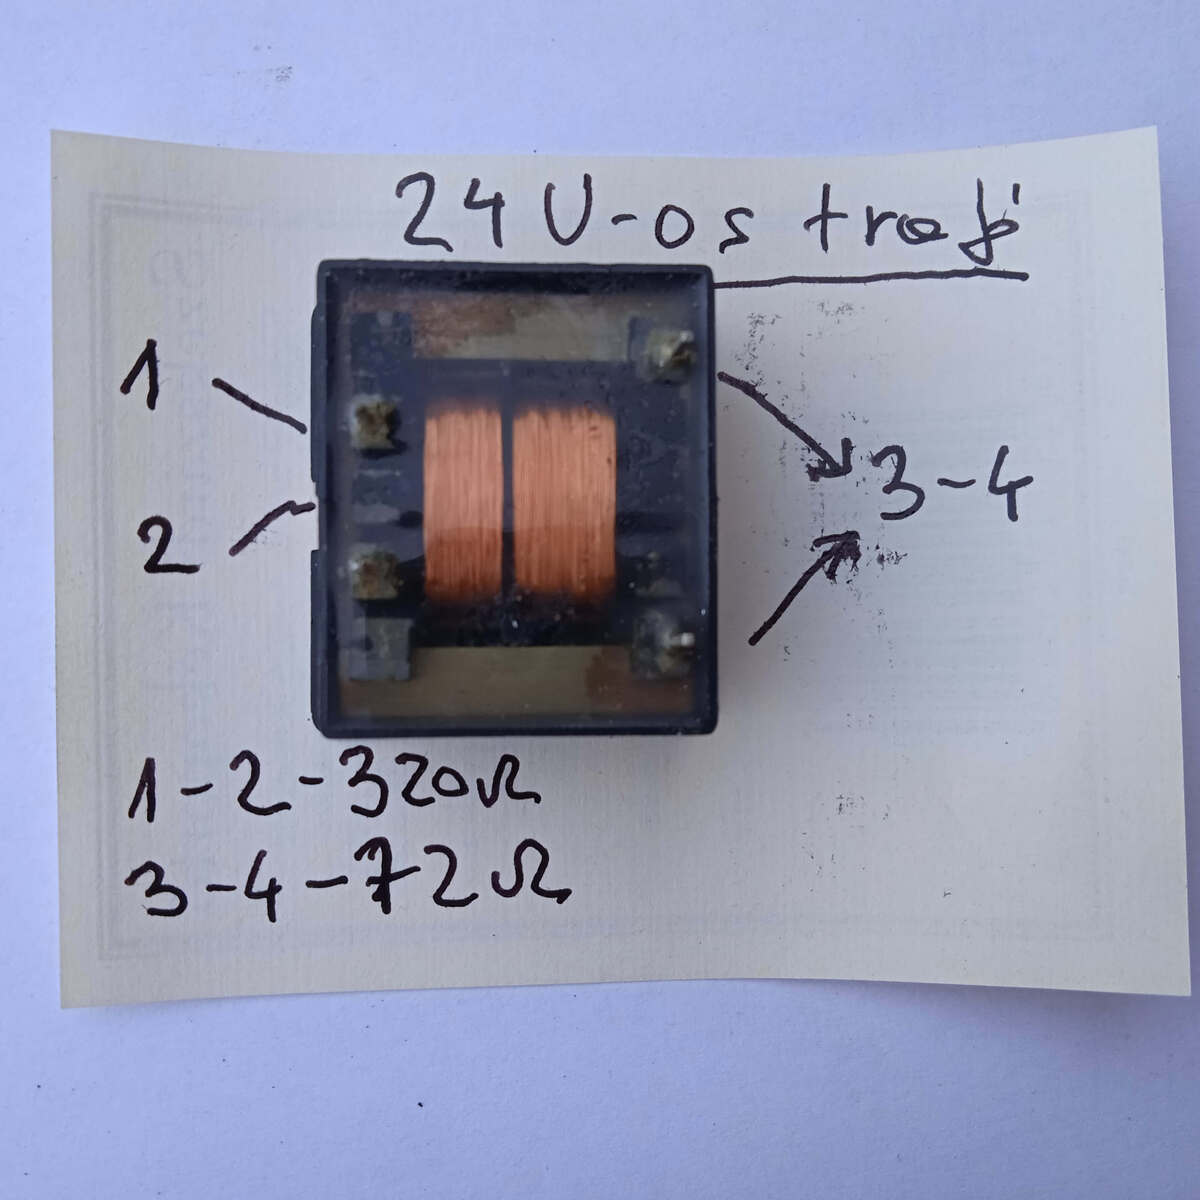 24 V-os trafó
1
2
3-4
1-2-320Ω
3-4-72Ω